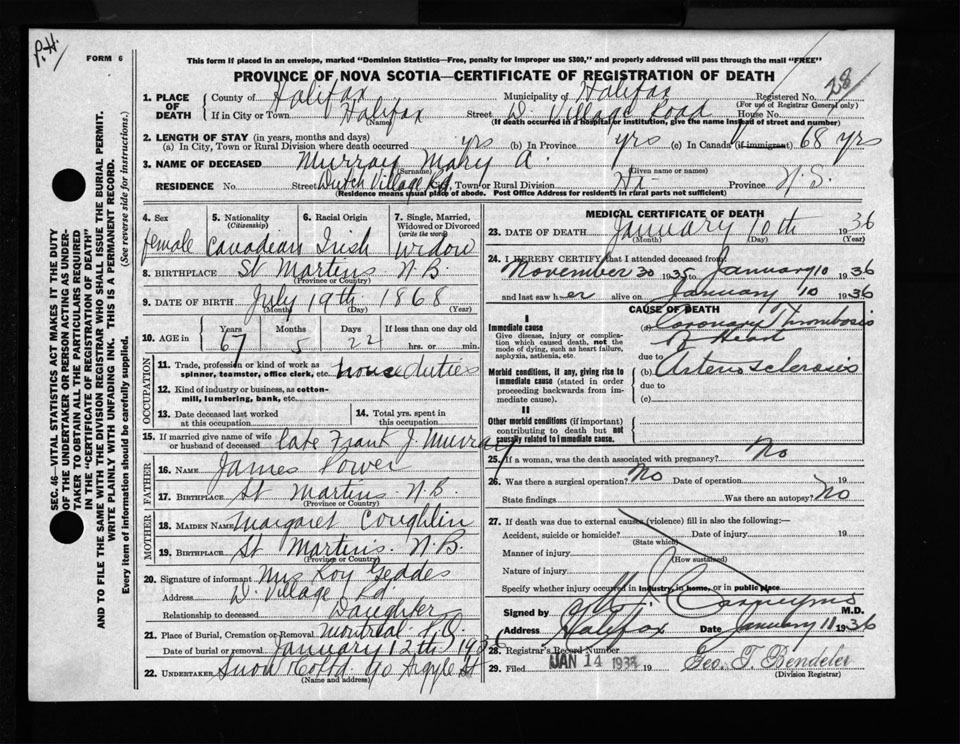 P.H.
FORM 6
This form if placed in an envelope, marked "Dominion Statistics—Free, penalty for improper use $300," and properly addressed will pass through the mail "FREE"
PROVINCE OF NOVA SCOTIA—CERTIFICATE OF REGISTRATION OF DEATH
28
1. PLACE OF DEATH { County of Halifax Municipality of Halifax Registered No.
(For use of Registrar General only)
If in City or Town Halifax Street D. Village Road House No.
(Name) (If death occurred in a hospital or institution, give the name instead of street and number)
2. LENGTH OF STAY (in years, months and days)
(a) In City, Town or Rural Division where death occurred yrs (b) In Province yrs (c) In Canada (if immigrant) 68 yrs
3. NAME OF DECEASED Murray Mary A.
(Surname) (Given name or names)
RESIDENCE No. Street Dutch Village Rd, Town or Rural Division Hx Province N.S.
(Residence means usual place of abode. Post Office Address for residents in rural parts not sufficient)
4. Sex female
5. Nationality (Citizenship) Canadian
6. Racial Origin Irish
7. Single, Married, Widowed or Divorced (write the word) widow
8. BIRTHPLACE St Martins N.B.
(Province or Country)
9. DATE OF BIRTH July 19th 1868
(Month) (Day) (Year)
10. AGE in { Years 67 Months 5 Days 22 If less than one day old hrs. or min.
OCCUPATION
11. Trade, profession or kind of work as spinner, teamster, office clerk, etc. house duties
12. Kind of industry or business, as cotton-mill, lumbering, bank, etc.
13. Date deceased last worked at this occupation
14. Total yrs. spent in this occupation
15. If married give name of wife or husband of deceased late Frank J. Murray
FATHER
16. NAME James Power
17. BIRTHPLACE St Martins N.B.
(Province or Country)
MOTHER
18. MAIDEN NAME Margaret Coughlin
19. BIRTHPLACE St Martins. N.B.
(Province or Country)
20. Signature of informant Mrs Roy Geddes
Address D. Village Rd.
Relationship to deceased Daughter
21. Place of Burial, Cremation or Removal Montreal P.Q.
Date of burial or removal January 12th 1936
22. UNDERTAKER Snow Co Ltd 90 Argyle St
(Name and address)
MEDICAL CERTIFICATE OF DEATH
23. DATE OF DEATH January 10th 1936
(Month) (Day) (Year)
24. I HEREBY CERTIFY that I attended deceased from
November 30 1935 to January 10 1936
and last saw her alive on January 10 1936
CAUSE OF DEATH
I
Immediate cause
Give disease, injury or complication which caused death, not the mode of dying, such as heart failure, asphyxia, asthenia, etc.
(a) Coronary Thrombosis of Heart
due to
Morbid conditions, if any, giving rise to immediate cause (stated in order proceeding backwards from immediate cause).
(b) Arterio sclerosis
due to
(c)
II
Other morbid conditions (if important) contributing to death but not causally related to immediate cause.
25. If a woman, was the death associated with pregnancy? No
26. Was there a surgical operation? No Date of operation 19
State findings Was there an autopsy? No
27. If death was due to external causes (violence) fill in also the following:—
Accident, suicide or homicide? Date of injury 19
(State which)
Manner of injury
(How sustained)
Nature of injury
Specify whether injury occurred in industry, in home, or in public place
Signed by M.D.
Address Halifax Date January 11 1936
28. Registrar's Record Number
29. Filed JAN 14 193 19 Geo. T. Bendeler
(Division Registrar)
SEC. 46—VITAL STATISTICS ACT MAKES IT THE DUTY
OF THE UNDERTAKER OR PERSON ACTING AS UNDER-
TAKER TO OBTAIN ALL THE PARTICULARS REQUIRED
IN THE "CERTIFICATE OF REGISTRATION OF DEATH"
AND TO FILE THE SAME WITH THE DIVISION REGISTRAR WHO SHALL ISSUE THE BURIAL PERMIT.
WRITE PLAINLY WITH UNFADING INK. THIS IS A PERMANENT RECORD.
Every item of information should be carefully supplied. (See reverse side for instructions.)